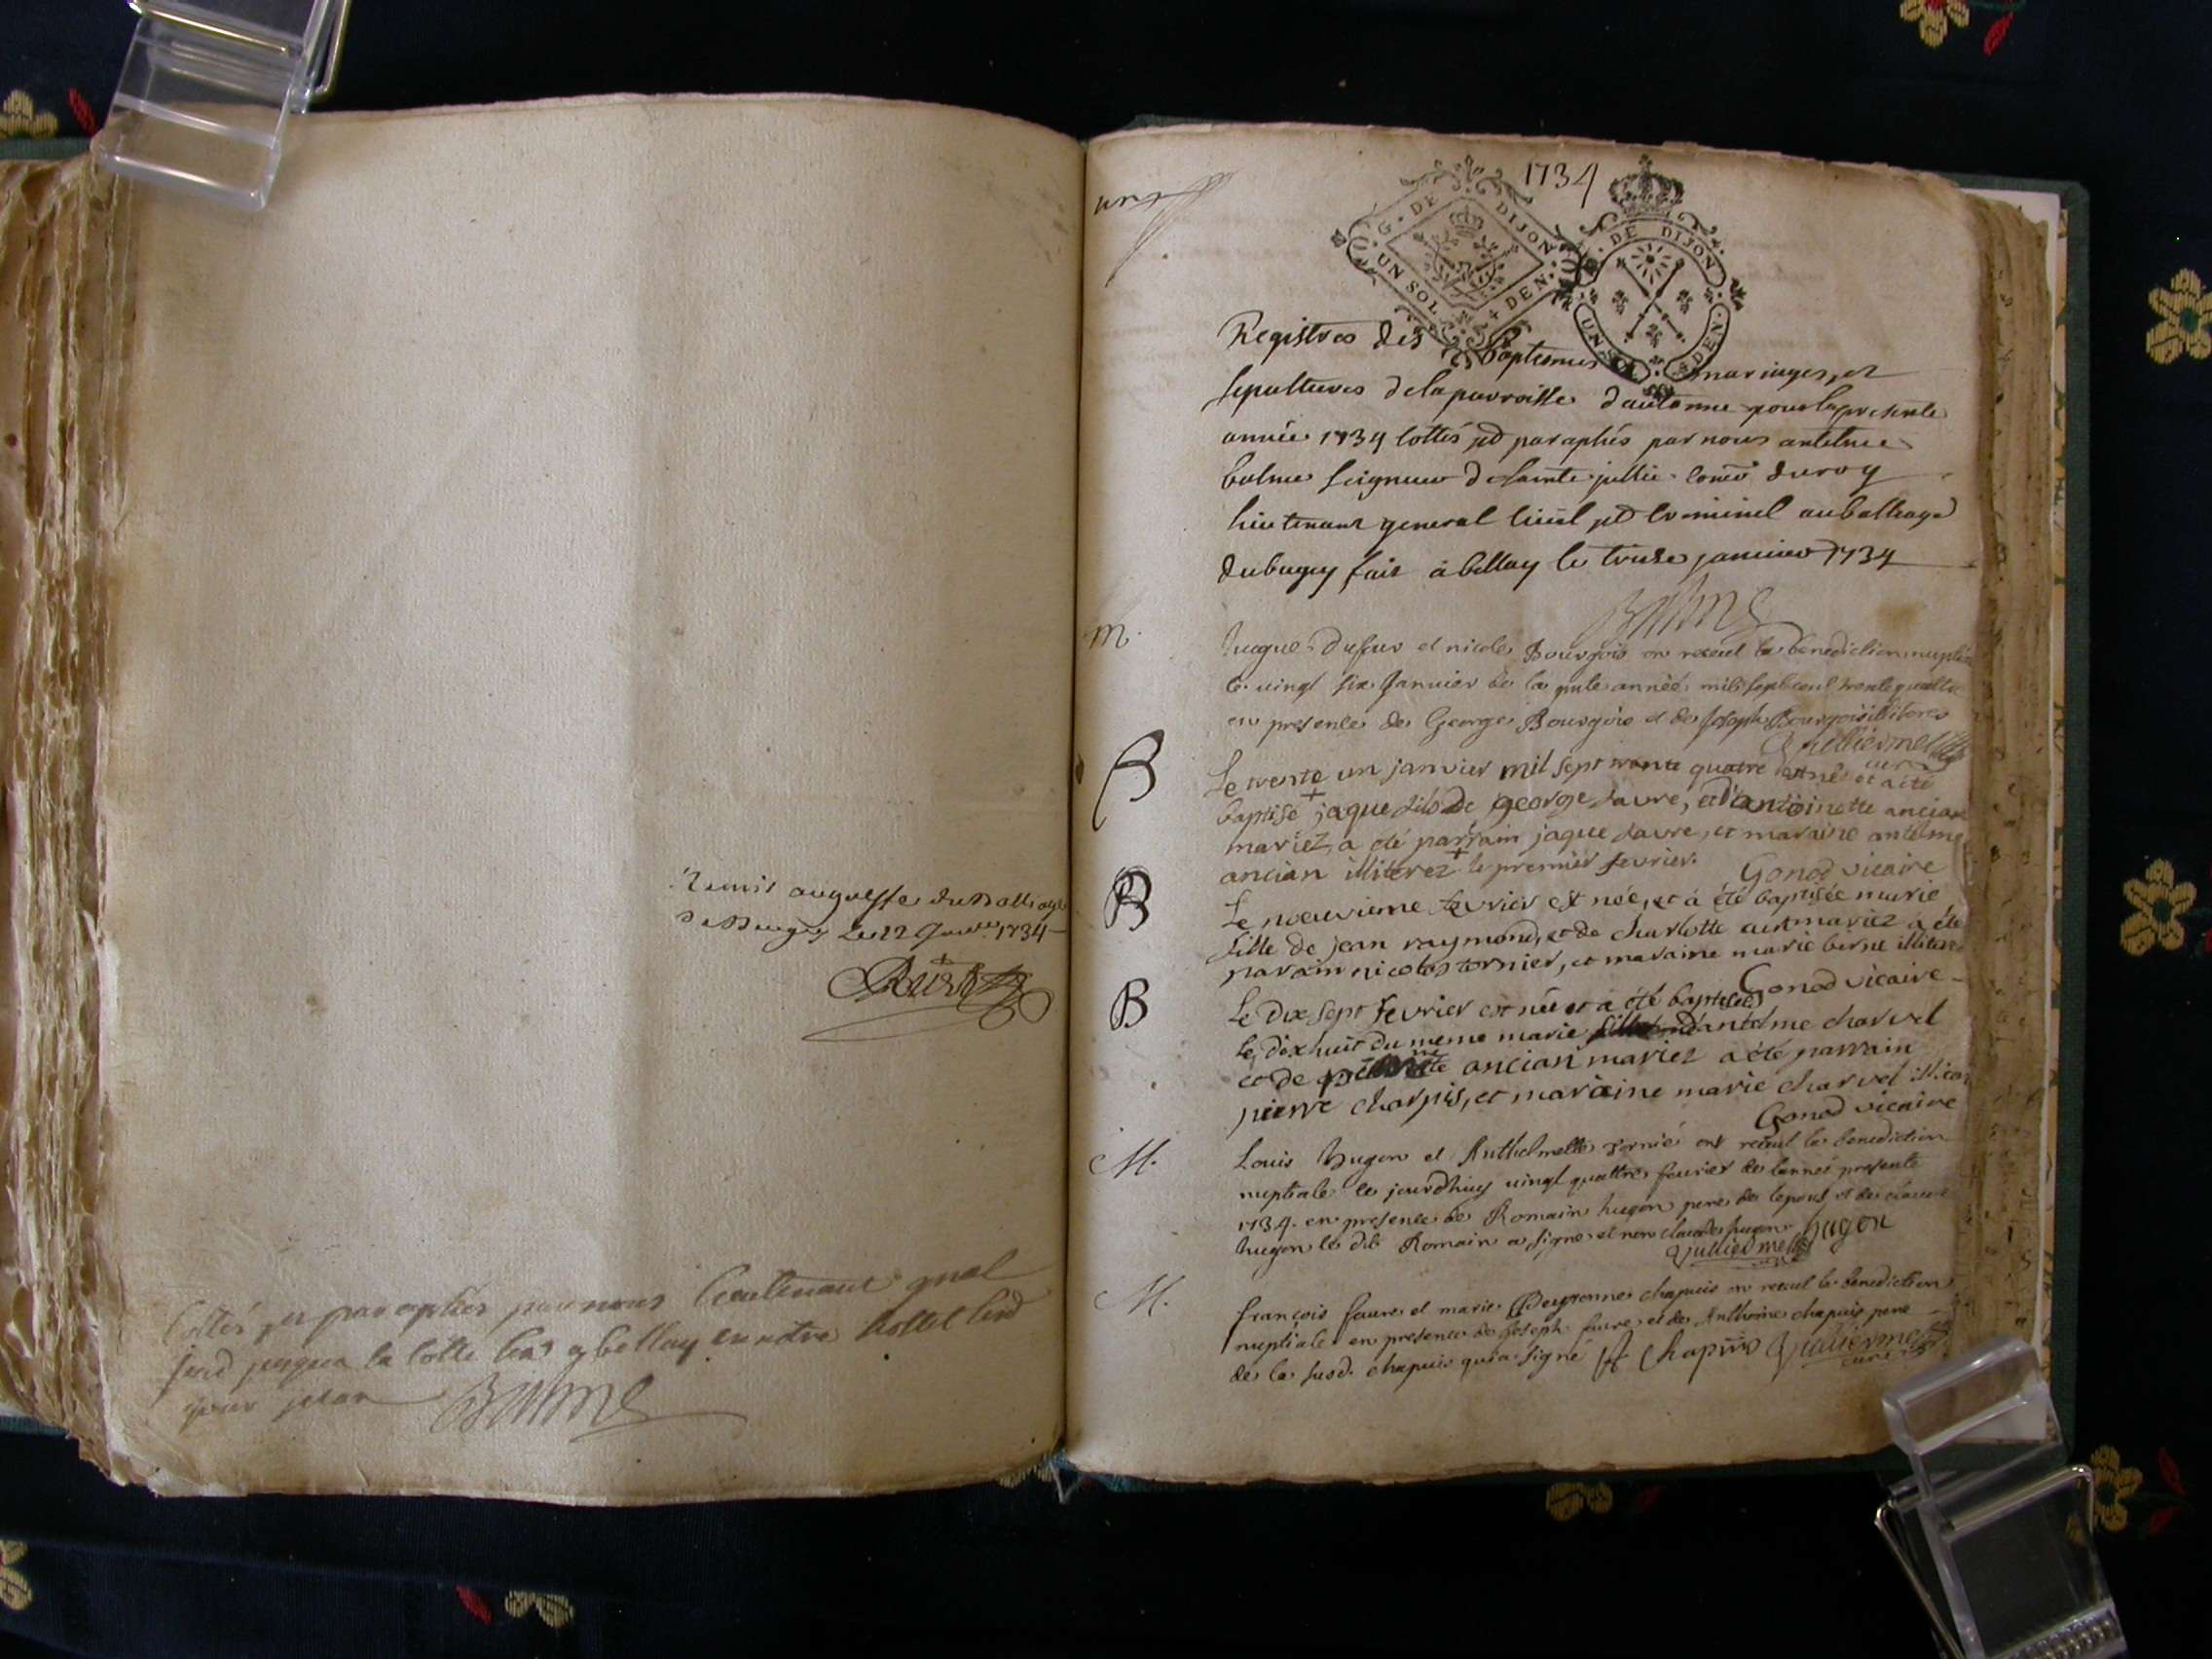 Remis au greffe du Balliage
de Bugey le 22 Janv. 1734
Cottés et paraphés par nous Lieutenant gnal
susd jusqua la cotte a bellay en notre hottel
Balme
1734
un
G. DE DIJON
UN SOL 4 DEN.
DE DIJON
UN SOL 4 DEN.
Registres des baptesmes mariages et
sepultures de la parroisse dautanne pour la presente
année 1734 cottés et paraphés par nous antelme
balme seigneur de sainte jullie conser du roy
lieutenant general civil et criminel au balliage
du bugey fait à bellay le treize janvier 1734
Balme
m. hugue Dufour et nicole Bourgois on receut la benediction nuptiale
le vingt six Janvier de la pnte année mil sept cent trente quattre
en presence de George Bourgois et de Joseph Bourgois illiteres
Vulliermet curé
B Le trente un janvier mil sept trante quatre est né et a été
baptisé jaque fils de george favre, et d'antoinette ancian
mariez, a été parrain jaque favre, et maraine antelme
ancian illiterez le premier fevrier. Gonod vicaire
B Le neuvieme fevrier est née, et à été baptisée marie
fille de jean raymond, et de charlotte mariez a été
parain nicolas tornier, et maraine marie berne illiterez
Gonod vicaire
B Le dix sept fevrier est née et a été baptisée
le dixhuit du meme marie d'antelme charvet
et de ancian mariez a été parrain
pierre charpis, et maraine marie charvet
Gonod vicaire
M. Louis hugon et Anthelmette tornié ont receut la benediction
nuptiale le jourdhuy vingt quattre fevrier de lannée presente
1734. en presence de Romain hugon pere de lepoux et de claude
hugon le dit Romain a signe et non claude hugon hugon
Vulliermet
M. françois favre et marie Peyronne chapuis on receut la benediction
nuptiale en presence de Joseph favre et de Anthoine chapuis pere
de la susd. chapuis qui a signe A Chapuis Vulliermet
curé